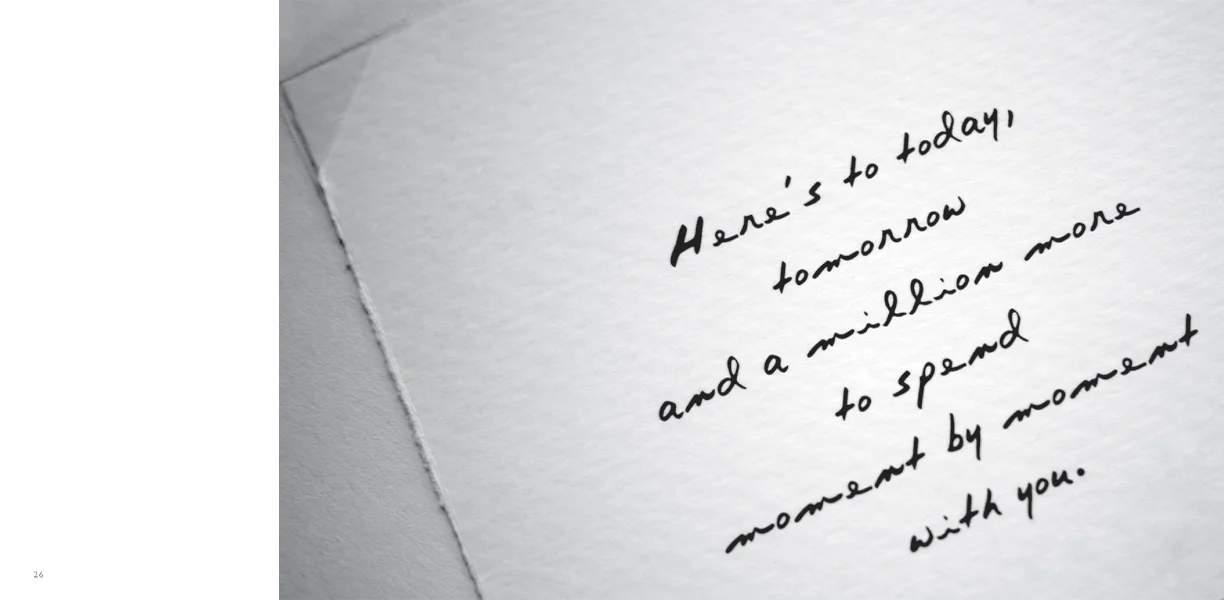 Here's to today,
tomorrow
and a million more
to spend
moment by moment
with you.
26